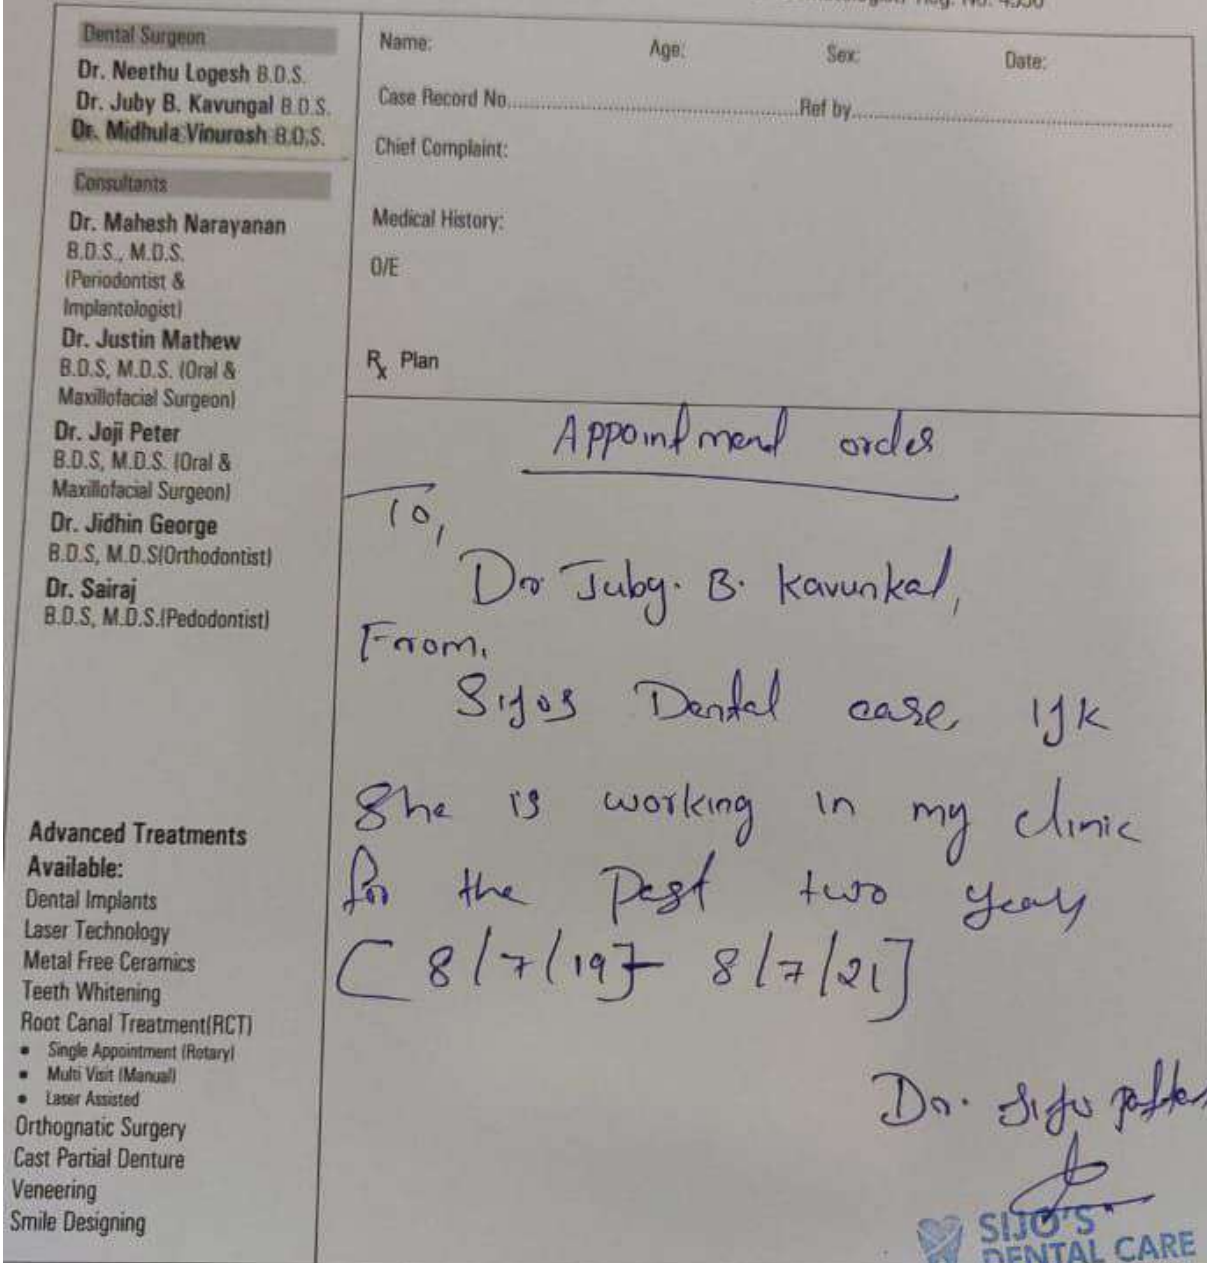 Reg. No. 4950
Dental Surgeon
Dr. Neethu Logesh B.D.S.
Dr. Juby B. Kavungal B.D.S.
Dr. Midhula Vinurosh B.D.S.
Consultants
Dr. Mahesh Narayanan
B.D.S., M.D.S.
(Periodontist &
Implantologist)
Dr. Justin Mathew
B.D.S, M.D.S. (Oral &
Maxillofacial Surgeon)
Dr. Joji Peter
B.D.S, M.D.S. (Oral &
Maxillofacial Surgeon)
Dr. Jidhin George
B.D.S, M.D.S(Orthodontist)
Dr. Sairaj
B.D.S, M.D.S.(Pedodontist)
Advanced Treatments
Available:
Dental Implants
Laser Technology
Metal Free Ceramics
Teeth Whitening
Root Canal Treatment(RCT)
• Single Appointment (Rotary)
• Multi Visit (Manual)
• Laser Assisted
Orthognatic Surgery
Cast Partial Denture
Veneering
Smile Designing
Name: Age: Sex: Date:
Case Record No. Ref by
Chief Complaint:
Medical History:
O/E
Rx Plan
Appointment order
To,
Dr Juby. B. Kavunkal,
From,
Sijos Dental care IJK
She is working in my clinic
for the past two years
[8/7/19]- 8/7/21]
Dr. Sijo
SIJO'S
DENTAL CARE